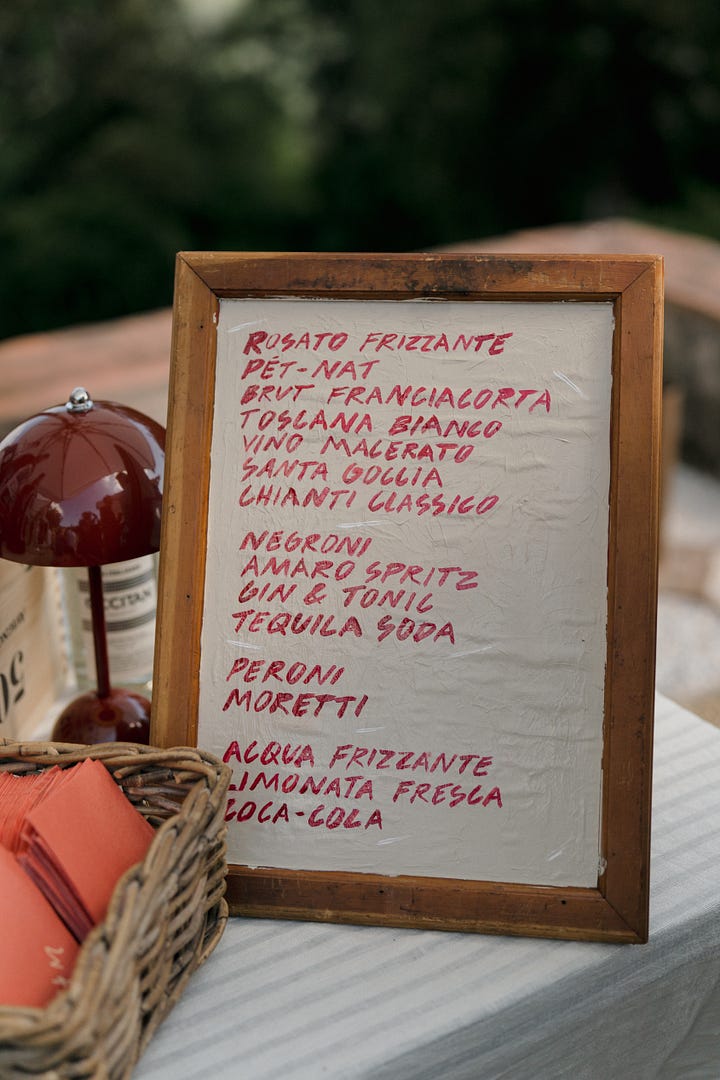 ROSATO FRIZZANTE
PÉT-NAT
BRUT FRANCIACORTA
TOSCANA BIANCO
VINO MACERATO
SANTA GOCCIA
CHIANTI CLASSICO
NEGRONI
AMARO SPRITZ
GIN & TONIC
TEQUILA SODA
PERONI
MORETTI
ACQUA FRIZZANTE
LIMONATA FRESCA
COCA-COLA
CCITAN
50